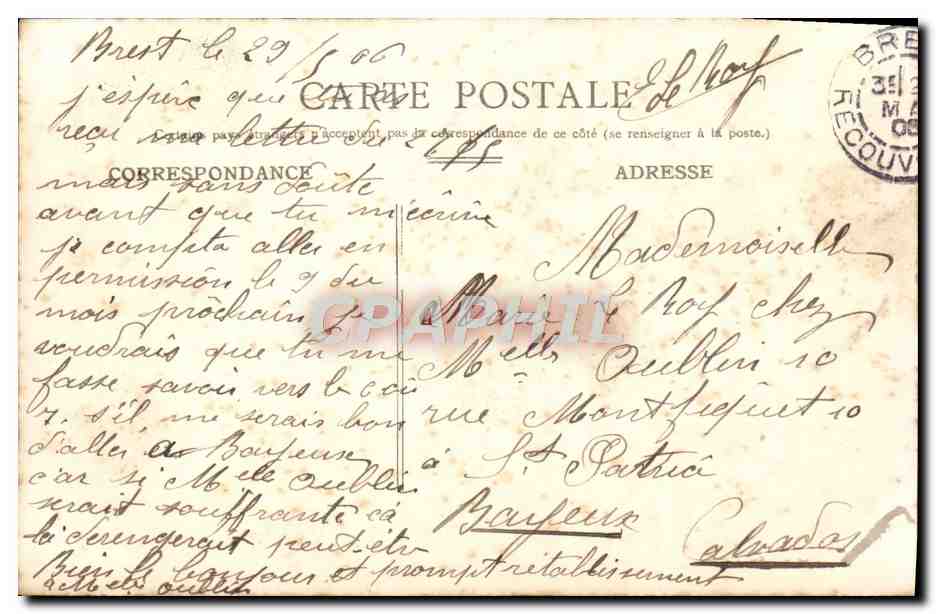 Brest le 29/5 06
j'espère que tu as
reçu ma lettre du
mais sans doute
avant que tu m'écrive
je compte aller en
permission le 9 du
mois prochain je
voudrais que tu me
fasse savoir vers le 6 où
7. s'il me serais bon
d'aller a Bayeux
car si Melle Oublin
serait souffrante ca
la derengerait peut-etre
Bien le bonjour et prompt rétablissement
a Melle Oublin
E Le Roy
CARTE POSTALE
Certains pays étrangers n'acceptent pas la correspondance de ce côté (se renseigner à la poste.)
CORRESPONDANCE
ADRESSE
Mademoiselle
Marie Le Roy chez
Melle Oublin 10
rue Montfiquet 10
à St Patrice
Bayeux
Calvados
BRE
3E
MA
06
RECOUV
CPAPHIL